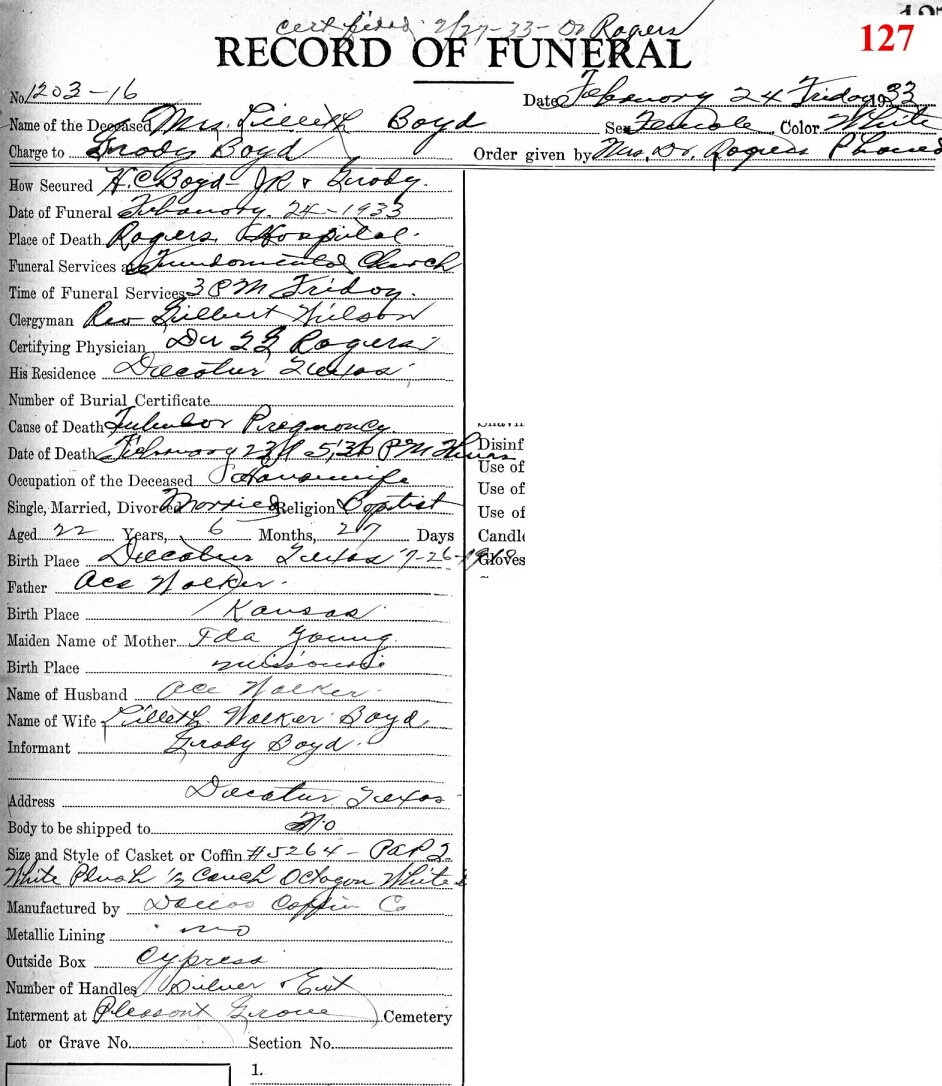 certified 2/27-33- Dr Rogers
127
RECORD OF FUNERAL
No. 1203-16
Date February 24 Friday 1933
Name of the Deceased Mrs. Lilleth Boyd Sex Female Color White
Charge to Grady Boyd Order given by Mrs. Dr. Rogers Phoned
How Secured H.C. Boyd - JR & Grady.
Date of Funeral Febauary. 24-1933
Place of Death Rogers Hospital.
Funeral Services at Fundamental Church
Time of Funeral Services 3 PM Friday.
Clergyman Rev Gilbert Wilson
Certifying Physician Dr Rogers
His Residence Decatur Texas
Number of Burial Certificate
Cause of Death Tubular Pregnancy.
Date of Death February 23rd 5,30 PM Thurs
Disinf
Use of
Occupation of the Deceased Housewife
Use of
Single, Married, Divorced Married Religion Baptist
Use of
Aged 22 Years, 6 Months, 27 Days
Candle
Birth Place Decatur Texas 7-26-19
Gloves
Father Ace Walker.
Birth Place Kansas
Maiden Name of Mother Ida Young
Birth Place Missourie
Name of Husband Ace Walker.
Name of Wife Lilleth Walker Boyd
Informant Grady Boyd.
Address Decatur Texas
Body to be shipped to No
Size and Style of Casket or Coffin #5264 -
White Plush 1/2 Couch Octagon White
Manufactured by Dallas Coffin Co
Metallic Lining no
Outside Box Cypress
Number of Handles Silver Ext
Interment at Pleasant Grove Cemetery
Lot or Grave No. Section No.
1.